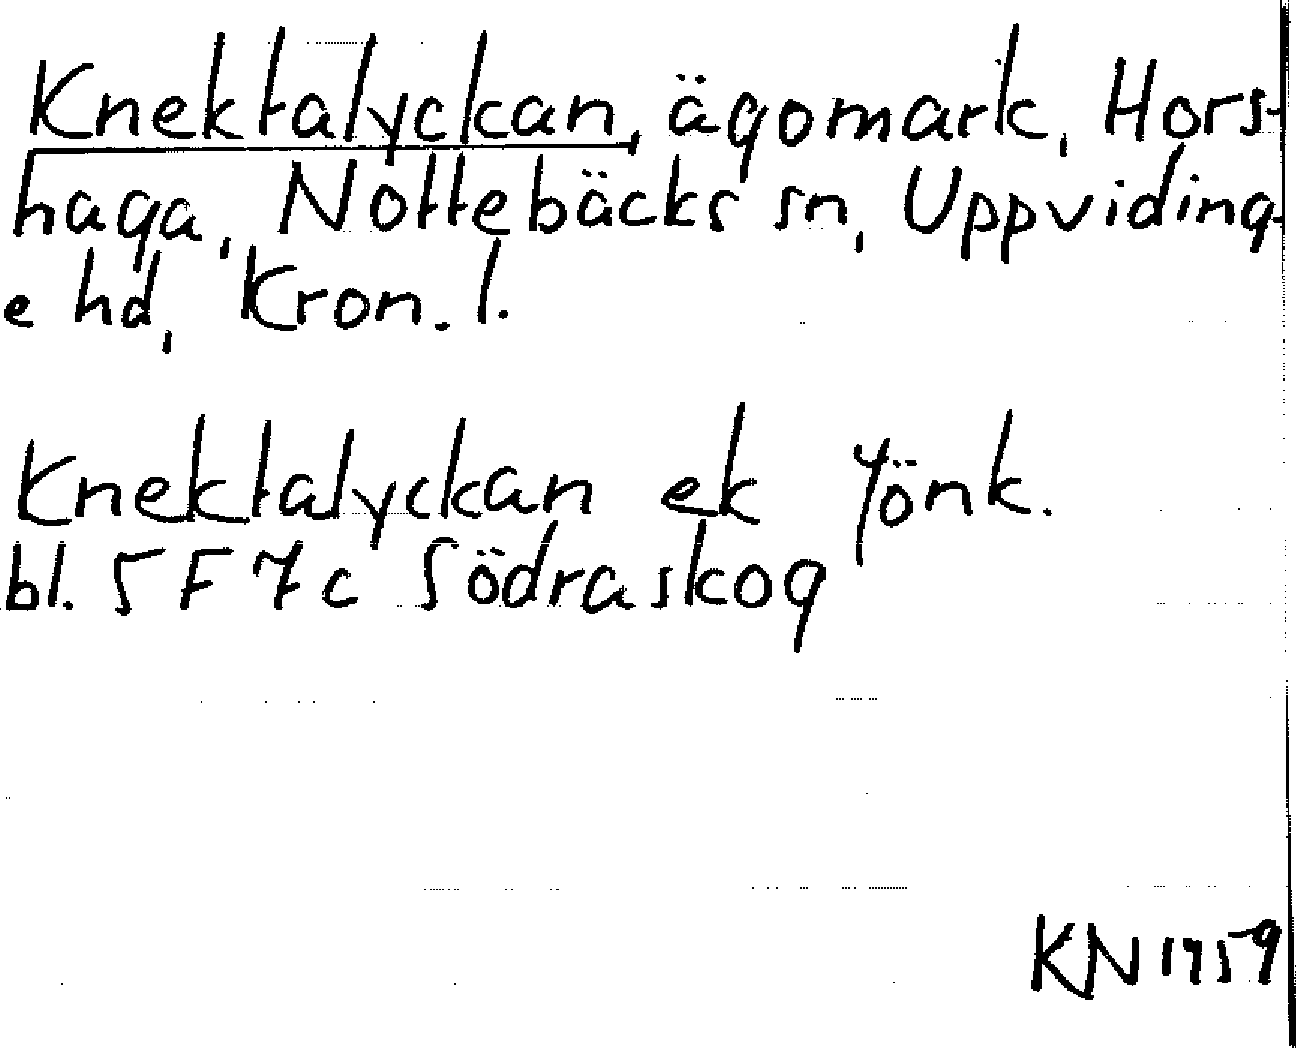 Knektalyckan, ägomark, Hors-
haga, Nottebäcks sn, Uppviding-
e hd, Kron. l.
Knektalyckan ek Jönk.
bl. 5F7c Södraskog
KN 1959